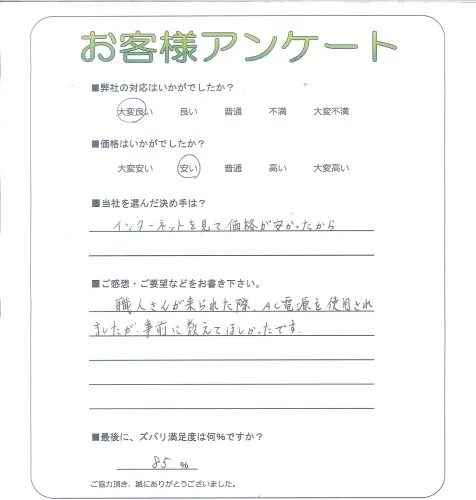 お客様アンケート
■弊社の対応はいかがでしたか？
大変良い 良い 普通 不満 大変不満
■価格はいかがでしたか？
大変安い 安い 普通 高い 大変高い
■当社を選んだ決め手は？
インターネットを見て価格が安かったから
■ご感想・ご要望などをお書き下さい。
職人さんが来られた際、AC電源を使用され
ましたが、事前に教えてほしかったです。
■最後に、ズバリ満足度は何%ですか？
85 %
ご協力頂き、誠にありがとうございました。